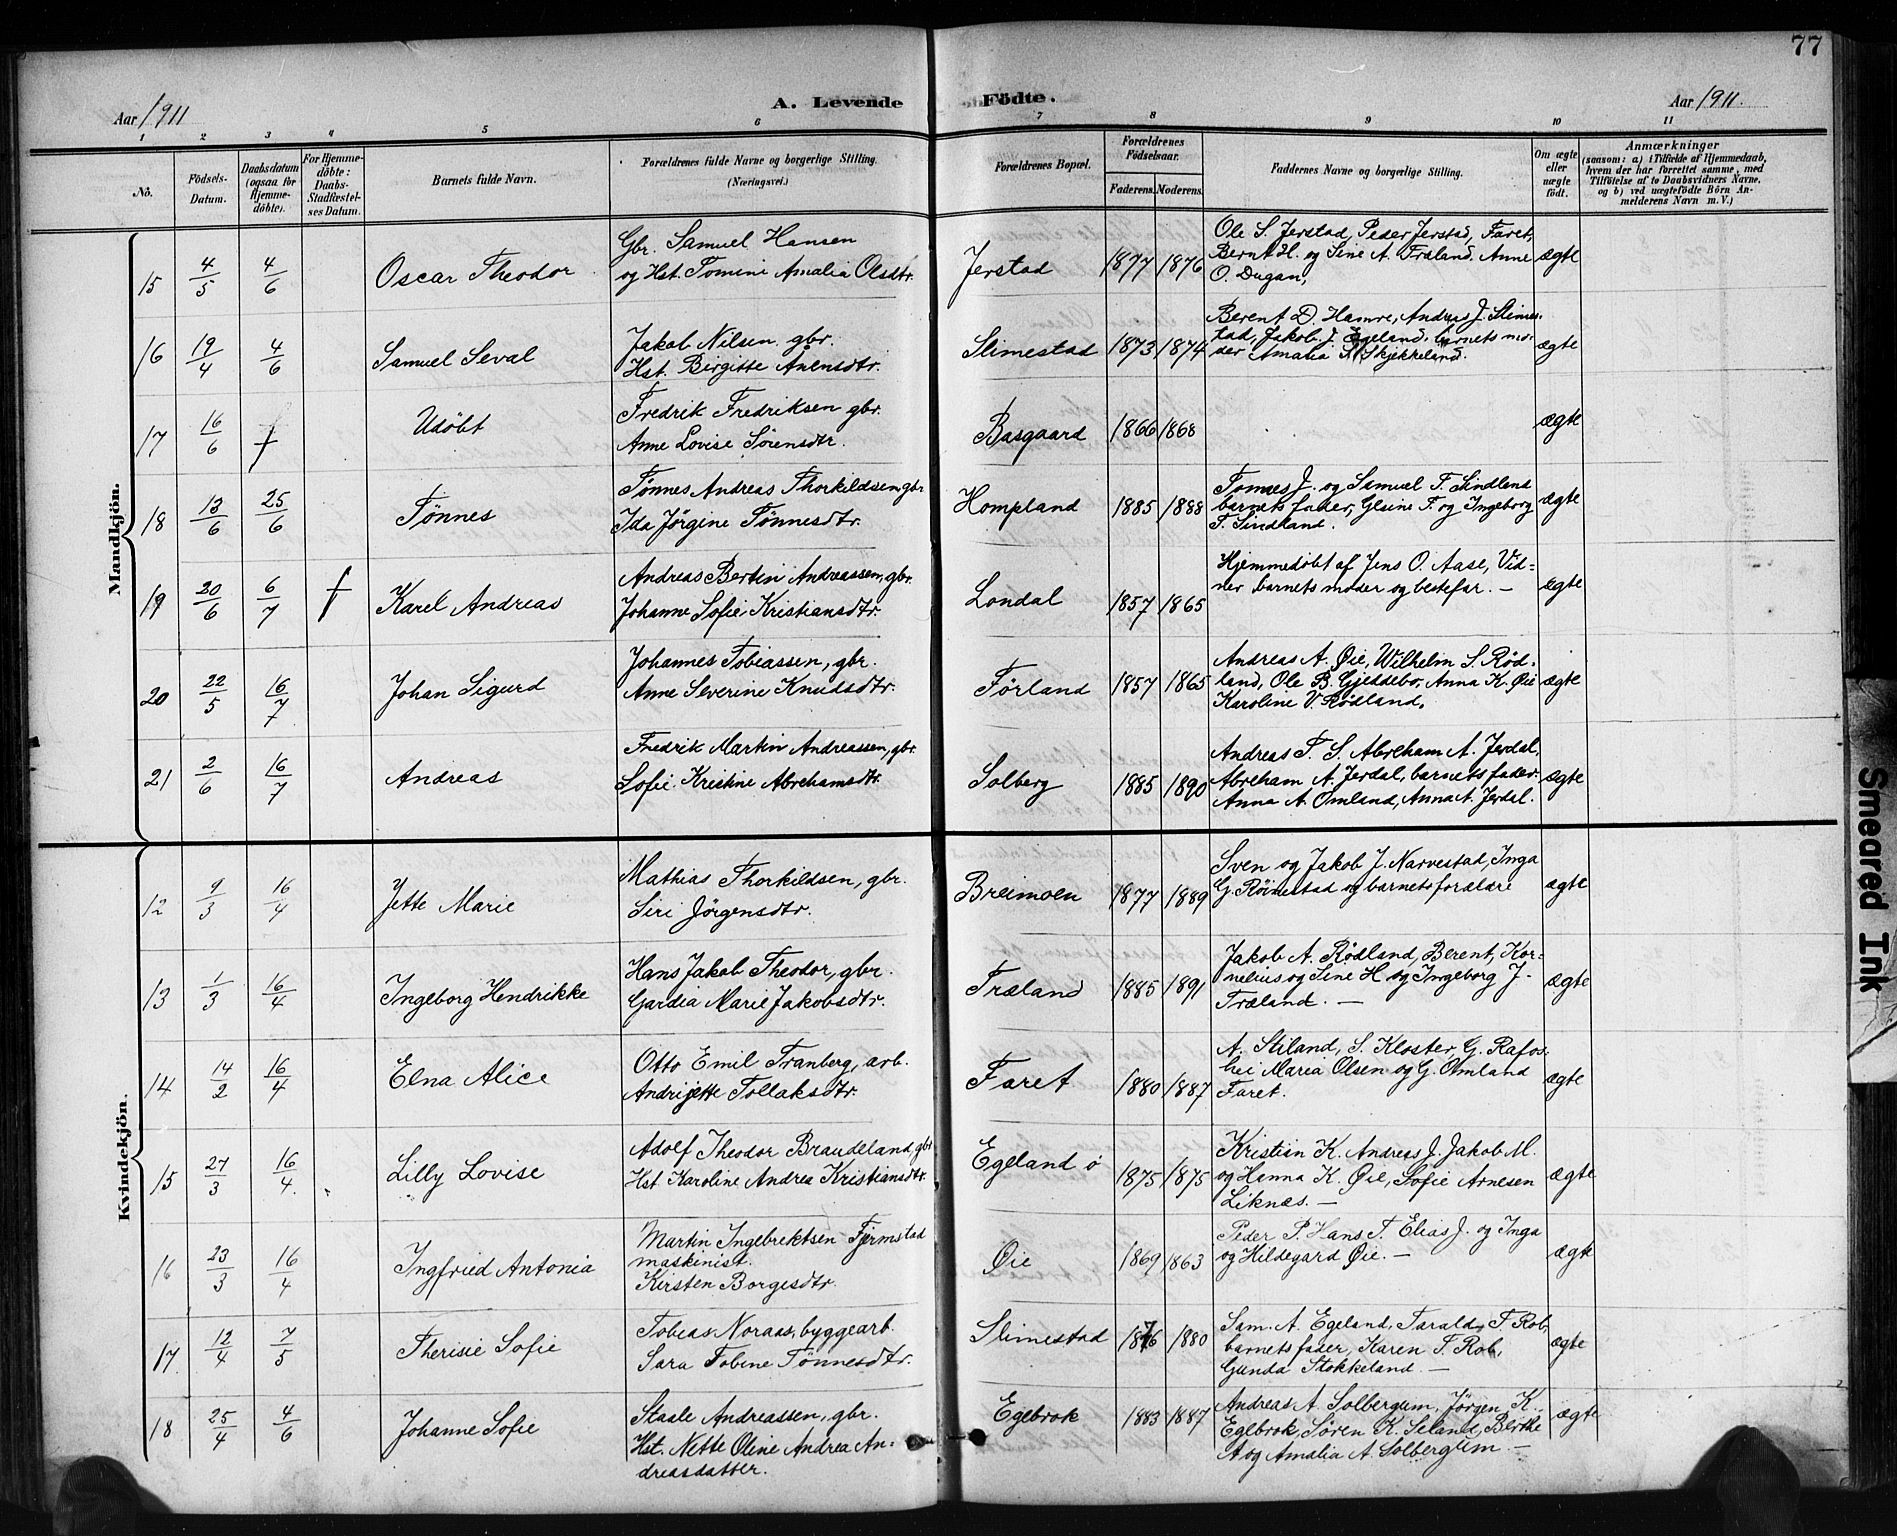 77
Aar 1911
A. Levende Födte.
Aar 1911.
1 2 3 4 5 6 7 8 9 10 11
No.
Födsels-Datum.
Daabsdatum (ogsaa for Hjemme-döbte).
For Hjemme-döbte: Daabs-Stadfæstel-ses Datum.
Barnets fulde Navn.
Forældrenes fulde Navne og borgerlige Stilling.
(Næringsvei.)
Forældrenes Bopæl.
Forældrenes Födselsaar.
Faderens. Moderens.
Faddernes Navne og borgerlige Stilling.
Om ægte eller uægte födt.
Anmærkninger
(saasom: a) i Tilfælde af Hjemmedaab,
hvem der har forrettet samme, med
Tilföielse af to Daabsvidners Navne,
og b) ved uægtefödte Börn An-
melderens Navn m. V.)
Mandkjön.
15 4/5 4/6 Oscar Theodor
Gbr. Samuel Hansen
og Hst. Tomine Amalia Olsdtr.
Jerstad 1877 1876
Ole S. Jerstad, Peder Jerstad, Faret,
Bernt H. og Sine A. Træland. Anne
O. Dugan,
ægte
16 19/4 4/6 Samuel Seval
Jakob Nilsen gbr.
Hst. Birgitte Anensdtr.
Slimestad 1873 1874
Berent D. Hamre, Andreas J. Slimes-
tad, Jakob J. Egeland, barnets mo-
der Amalia S. Skjekkeland.
ægte
17 16/6 † Udøbt
Fredrik Fredriksen gbr.
Anne Lovise Sörensdtr.
Basgaard 1866 1868
ægte
18 13/6 25/6 Tønnes
Tønnes Andreas Thorkildsen, gbr
Ida Jörgine Tønnesdtr.
Hompland 1885 1888
Tomes J. og Samuel T. Sindland
barnets fader, Gksine T. og Ingeborg
T. Sindland.
ægte
19 20/6 6/7 † Karel Andreas
Andreas Bertin Andreassen, gbr.
Johanne Sofie Kristiansdtr.
Londal 1857 1865
Hjemmedøbt af Jens O. Aase, Vid-
ner barnets moder og bestefar. —
ægte
20 22/5 16/7 Johan Sigurd
Johannes Tobiassen, gbr.
Anne Severine Knudsdtr.
Førland 1857 1865
Andreas A. Øie, Wilhelm S. Rød-
land, Ole B. Gjeddebo, Anna K. Øie
Karoline V. Rødland.
ægte
21 2/6 16/7 Andreas
Fredrik Martin Andreassen, gbr.
Sofie Kristine Abrehamsdtr.
Solberg 1885 1890
Andreas F. S. Abreham A. Jerdal,
Abreham A. Jerdal, barnets fader.
Anna A. Omland, Anna A. Jerdal.
ægte
Kvindekjön.
12 9/3 16/4 Jette Marie
Mathias Thorkildsen, gbr.
Siri Jörgensdtr.
Breimoen 1877 1889
Sven og Jakob J. Narvestad, Inga
G. Röinestad og barnets forældre
ægte
13 1/3 16/4 Ingeborg Hendrikke
Hans Jakob Theodor, gbr.
Gardia Marie Jakobsdtr.
Træland 1885 1891
Jakob A. Rødland, Berent, Kor-
nelius og Sine H og Ingeborg J.
Træland. —
ægte
14 14/2 16/4 Elna Alice
Otto Emil Tranberg, arb.
Andrijette Tollaksdtr.
Faret 1880 1887
A. Stiland, S. Kloster, G. Rafos-
hei Maria Olsen og G. Omland
Faret.
ægte
15 27/3 16/4 Lilly Lovise
Adolf Theodor Braudeland, gbr
Hst Karoline Andrea Kristiansdtr.
Egeland ö 1875 1875
Kristian K. Andreas J. Jakob M.
og Hanna K. Øie, Sofie Arnesen
Liknæs. —
ægte
16 23/3 16/4 Ingfried Antonia
Martin Ingebrektsen Fjermstad
maskinist.
Kirsten Borgesdtr.
Øie 1869 1863
Peder P. Hans T. Elias J. og Inga
og Hildegard Øie. —
ægte
17 12/4 7/5 Therisie Sofie
Tobias Noraas, byggearb.
Sara Tobine Tönnesdtr.
Slimestad 1876 1880
Sam. A. Egeland, Tarald, T Rob,
barnets fader, Karen T. Rob,
Gunda Stokkeland —
ægte
18 25/4 4/6 Johanne Sofie
Staale Andreassen, gbr.
Hst. Nette Oline Andrea An-
dreasdatter.
Egebrok 1883 1887
Andreas A. Solbergum, Jörgen K.
Egebrok, Sören K. Seland, Berthe
A og Amalia A. Solbergum —
ægte
Smeared Ink